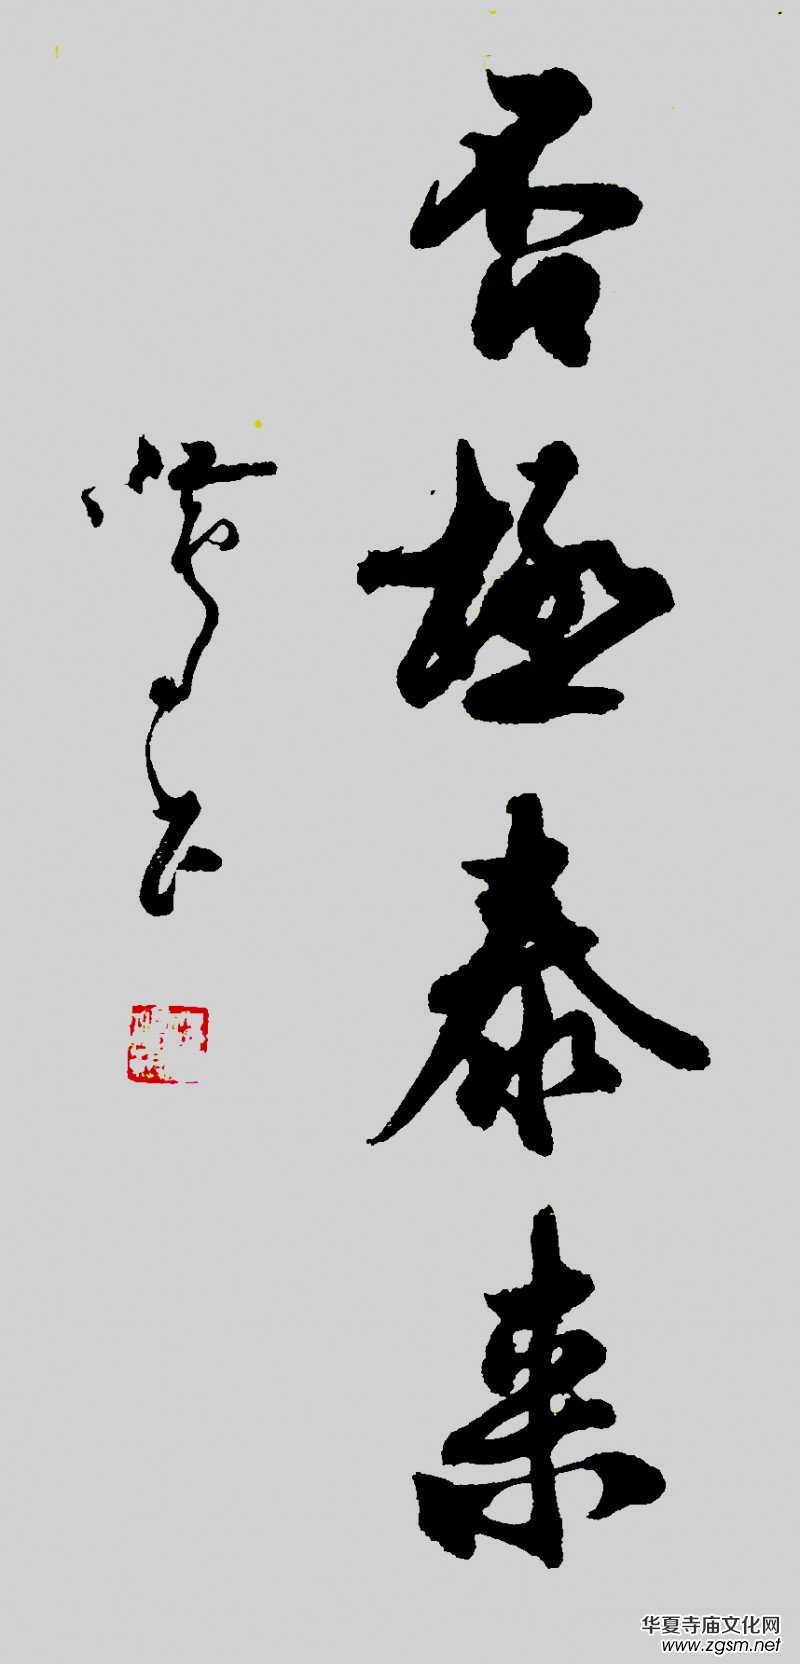 否極泰来
华夏寺庙文化网
www.zgsm.net